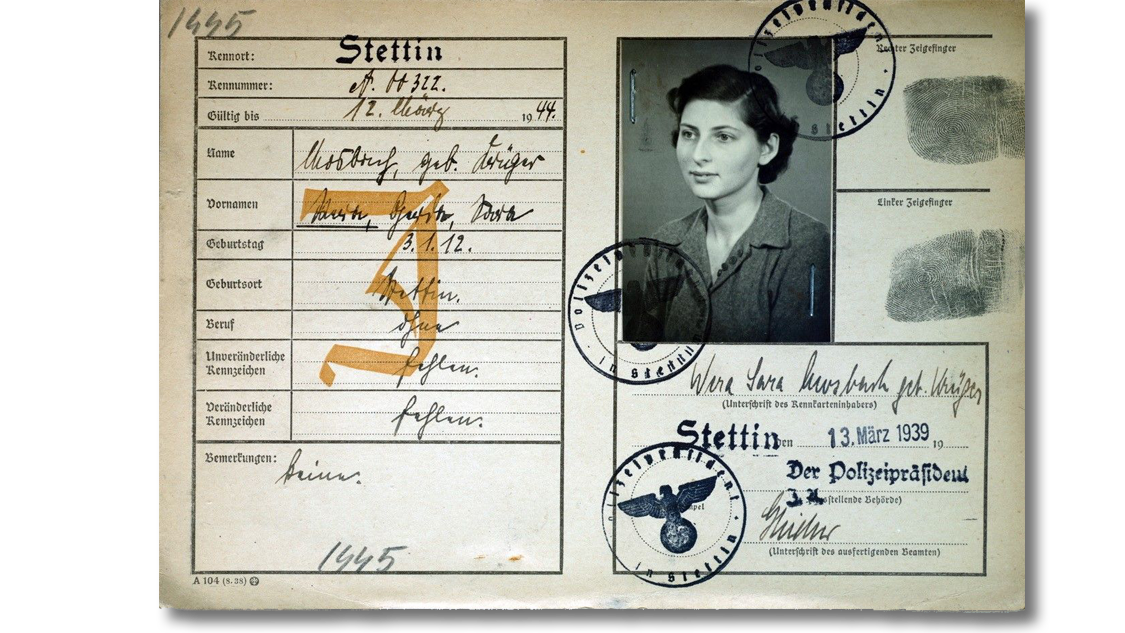 1445
Kennort: Stettin
Kennummer: A. 00322.
Gültig bis 12. März 1944.
Name Mosbach, geb. Krüger
Vornamen Wera, Gerda, Sara
Geburtstag 3.1.12.
Geburtsort Stettin.
Beruf ohne
Unveränderliche
Kennzeichen fehlen.
Veränderliche
Kennzeichen fehlen.
Bemerkungen: Keine.
1445
A 104 (8. 38)
J
Polizeipräsident
Stettin
Rechter Zeigefinger
Linker Zeigefinger
Polizeipräsident
in Stettin
Wera Sara Mosbach geb. Krüger
(Unterschrift des Kennkarteninhabers)
Stettin, den 13. März 1939 19
Der Polizeipräsident
(Ausstellende Behörde)
Polizeipräsident
in Stettin
(Unterschrift des ausfertigenden Beamten)